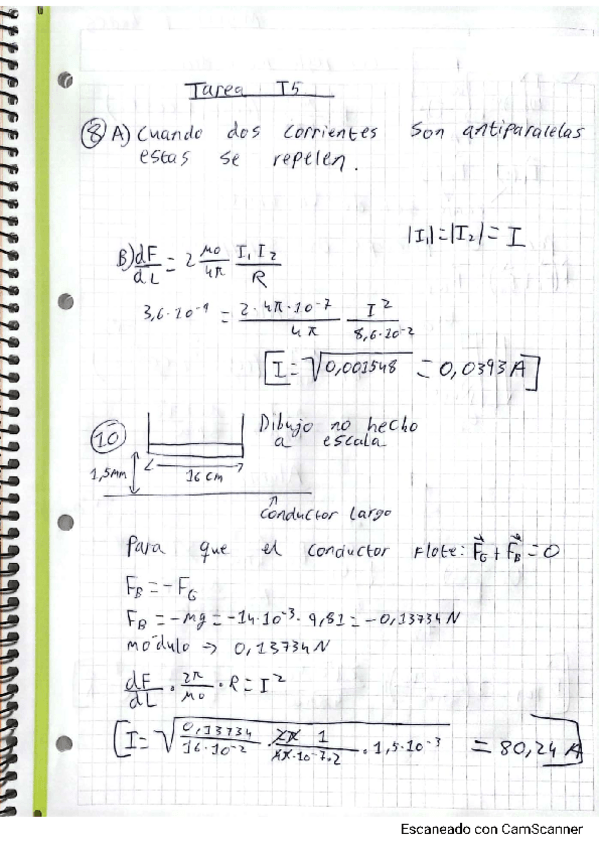 Tarea T5
⑧ A) Cuando dos corrientes son antiparalelas
estas se repelen.
|I₁|=|I₂|= I
B) dF/dL = 2 μ0/4π I₁I₂/R
3,6·10⁻⁹ = 2·4π·10⁻⁷/4π I²/8,6·10⁻²
[I=√0,001548 = 0,0393 A]
⑩ Dibujo no hecho
a escala
1,5mm
16 cm
conductor largo
Para que el conductor flote: F⃗G + F⃗B = 0
FB = -FG
FB = -mg = -14·10⁻³· 9,81 = -0,13734 N
módulo → 0,13734 N
dF/dL · 2π/μ0 · R = I²
[I=√0,13734/16·10⁻² · 2π 1/4π·10⁻⁷·2 · 1,5·10⁻³ = 80,24 A]
Escaneado con CamScanner